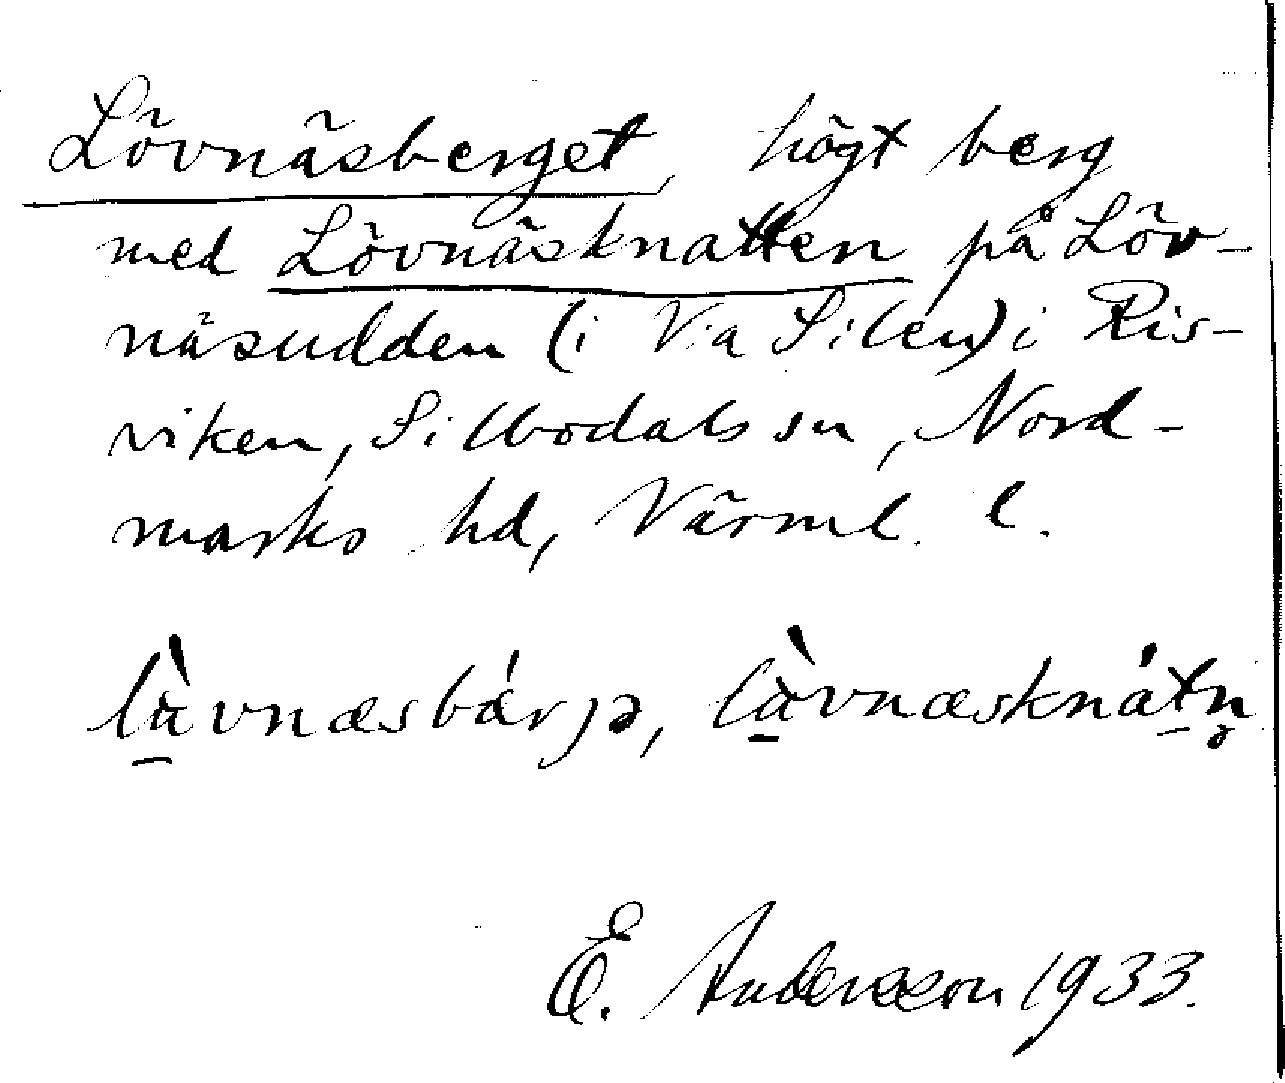 Lövnäsberget, högt berg
med Lövnäsknatten på Löv-
näsudden (i V:a Silen) i Ris-
viken, Silbodals sn, Nord-
marks hd, Värml. l.
là̱vnæsbárɟə, là̱vnæsknátn̥
E. Andersson 1933.